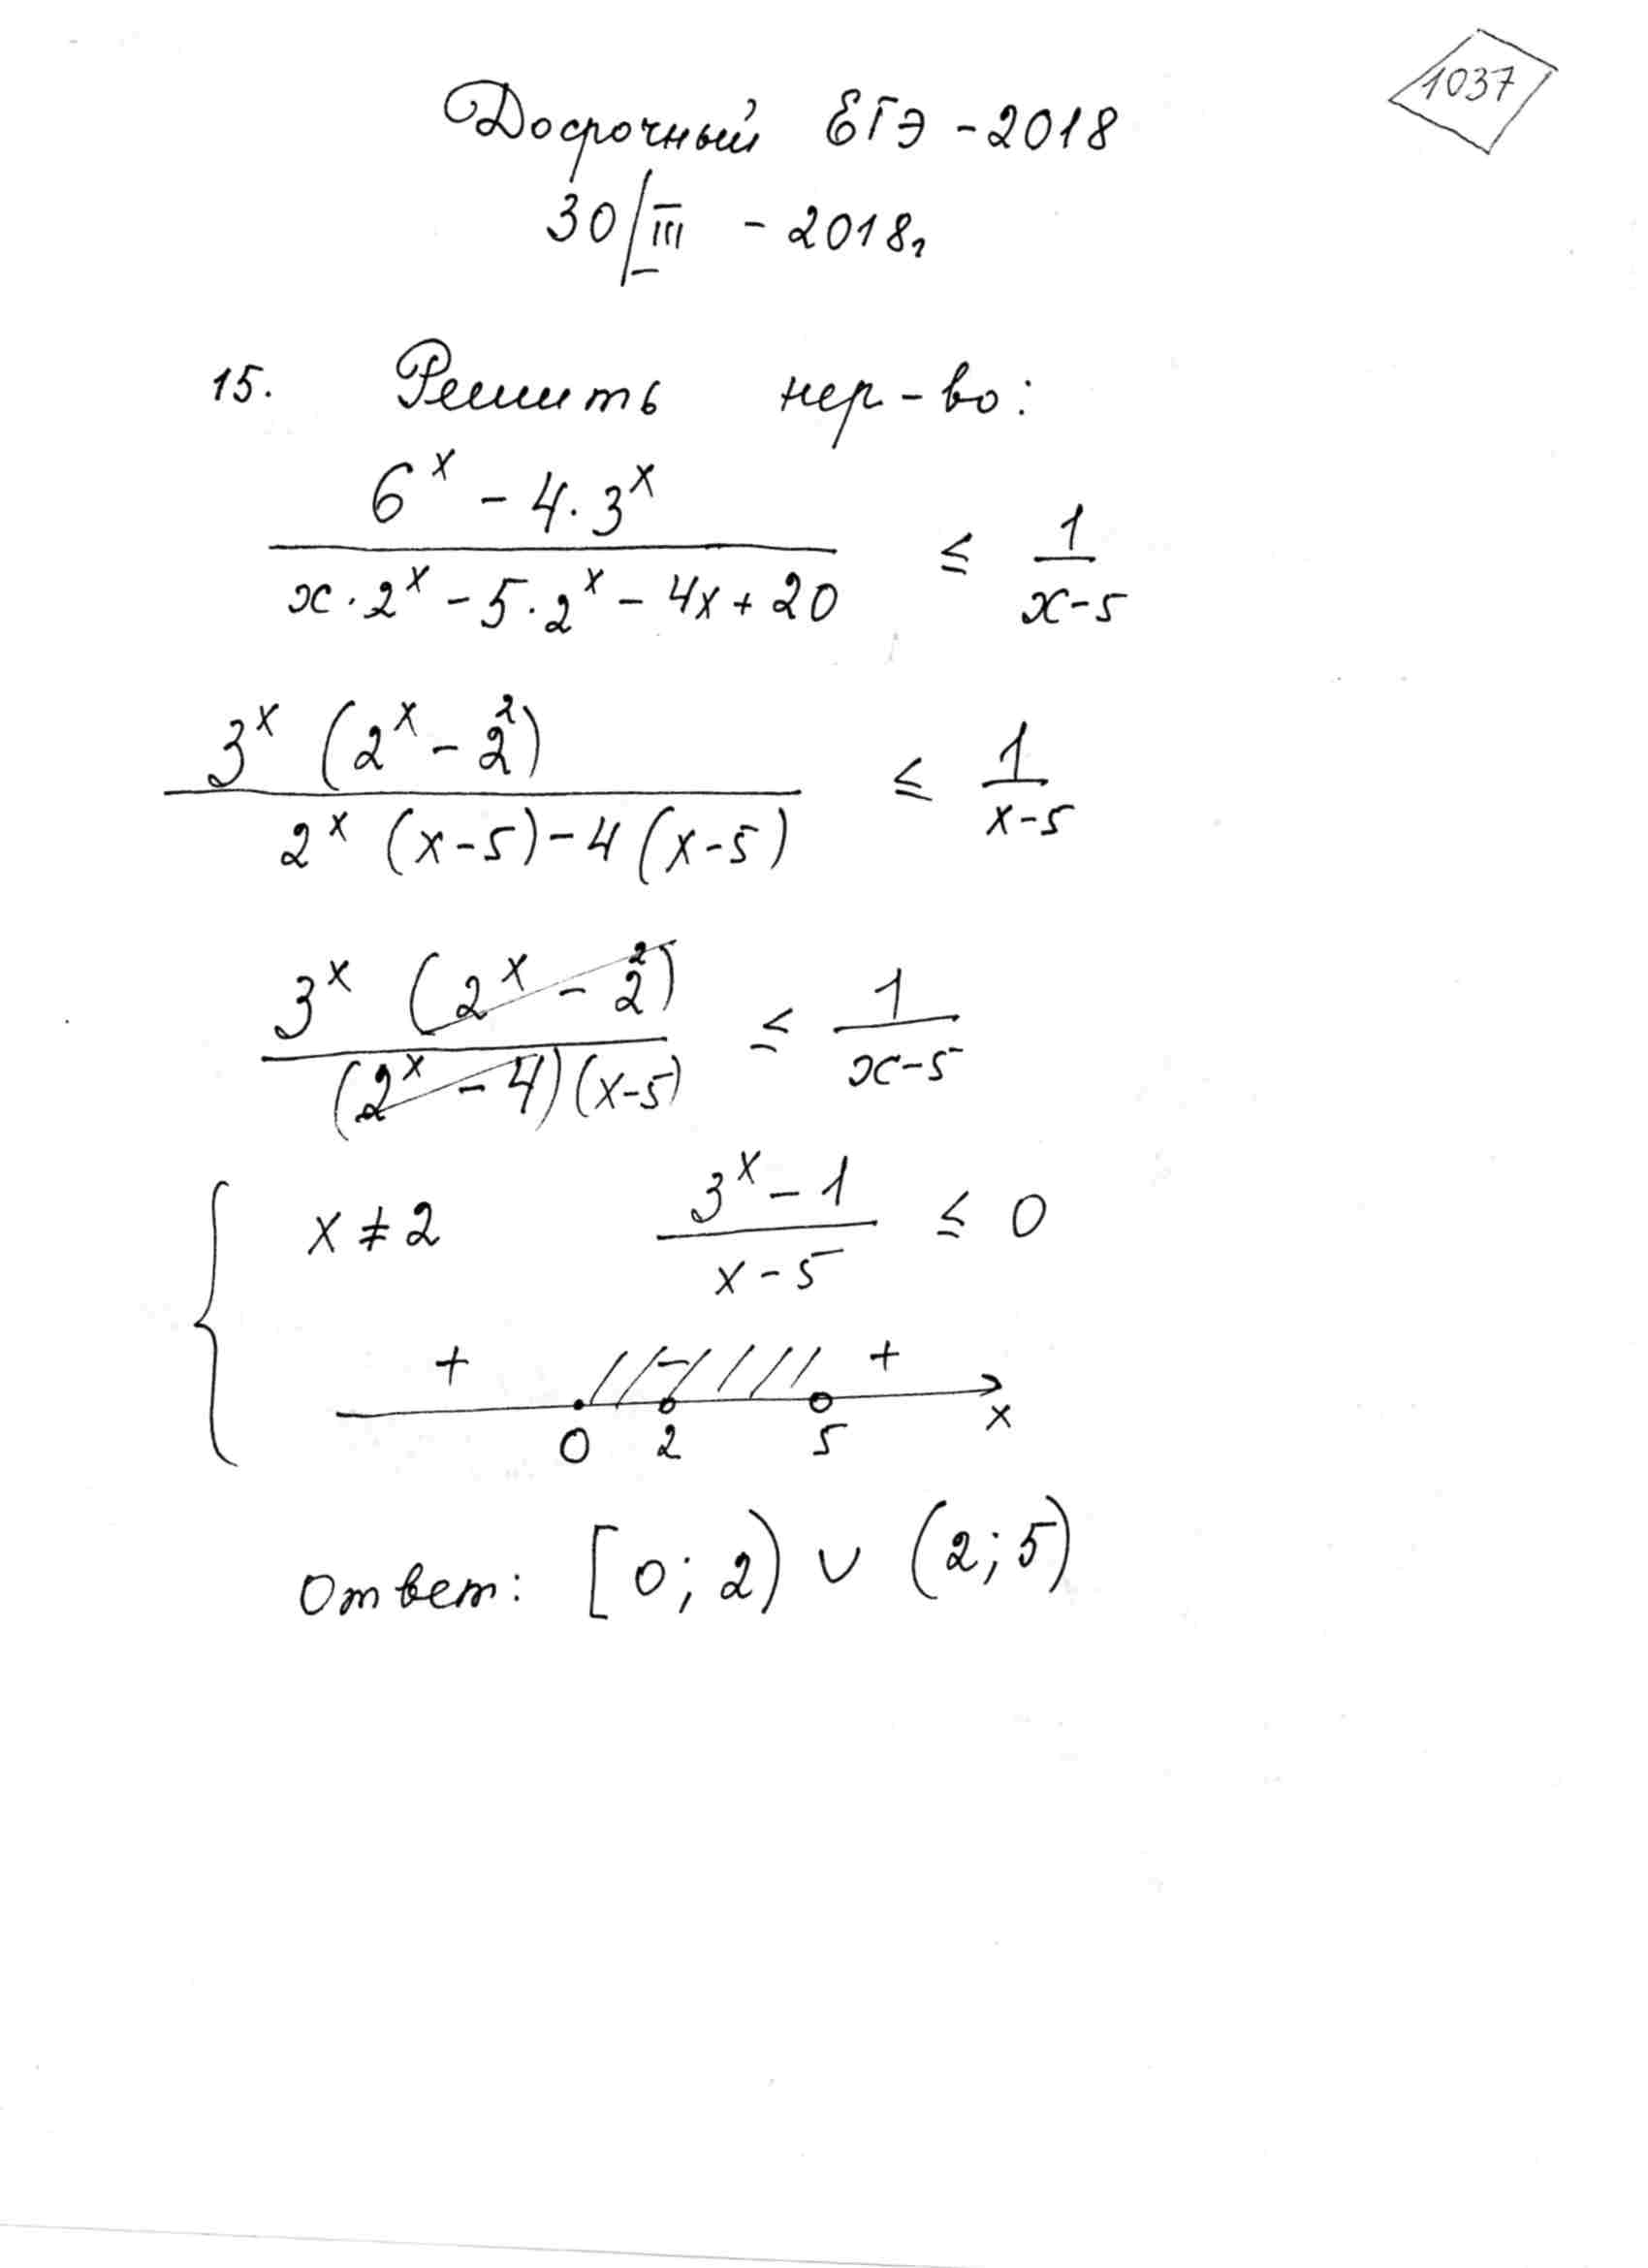 1037
Досрочный ЕГЭ - 2018
30/III - 2018г
15. Решить нер-во:
(6^x - 4·3^x)/(x·2^x - 5·2^x - 4x + 20) ≤ 1/(x-5)
(3^x (2^x - 2^2))/(2^x (x-5) - 4(x-5)) ≤ 1/(x-5)
(3^x (2^x - 2^2))/((2^x - 4)(x-5)) ≤ 1/(x-5)
{ x ≠ 2 (3^x - 1)/(x-5) ≤ 0
+ - +
0 2 5 x
Ответ: [0; 2) ∪ (2; 5)